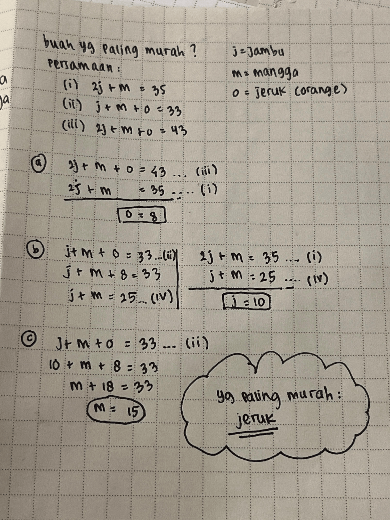 buah yg paling murah?
j = jambu
persamaan:
m = mangga
(i) 2j + m = 35
o = jeruk (orange)
(ii) j + m + o = 33
(iii) 2j + m + o = 43
a
2j + m + o = 43 ... (iii)
2j + m = 35 ... (i)
o = 8
b
j + m + o = 33...(ii)
j + m + 8 = 33
j + m = 25...(iv)
2j + m = 35 ... (i)
j + m = 25 ... (iv)
j = 10
c
j + m + o = 33 ... (ii)
10 + m + 8 = 33
m + 18 = 33
m = 15
yg paling murah:
jeruk